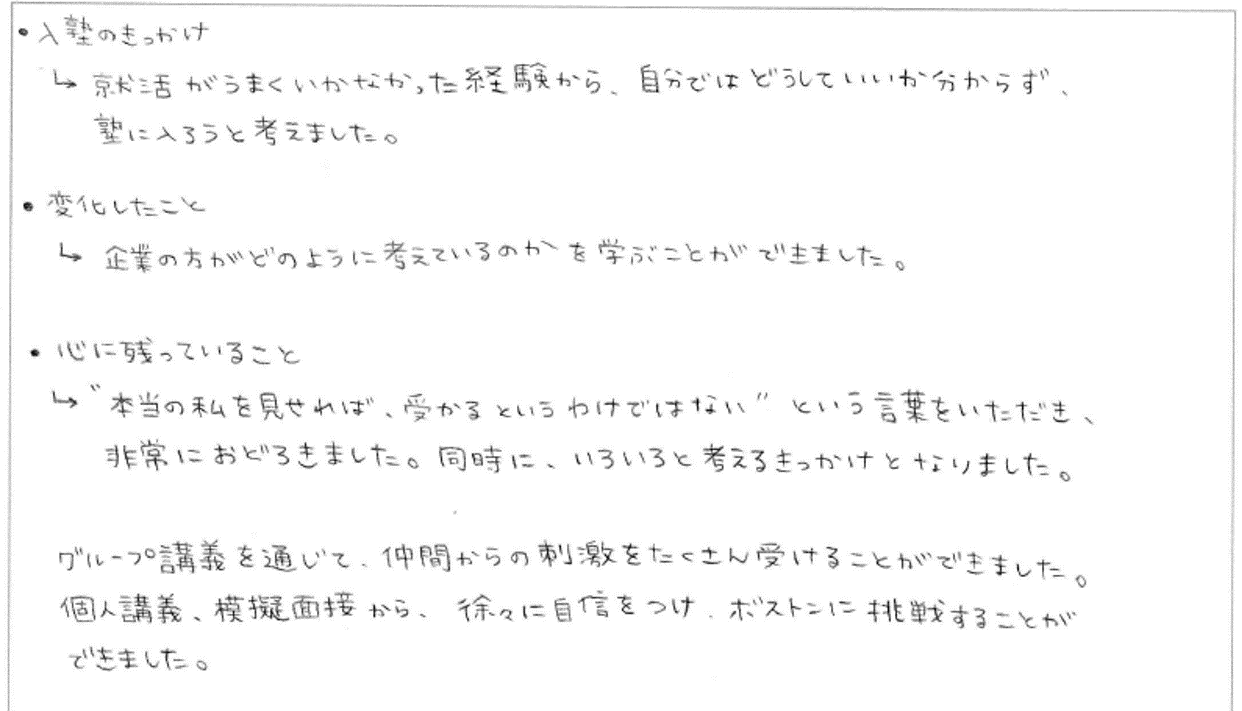 ・入塾のきっかけ
↳ 就活がうまくいかなかった経験から、自分ではどうしていいか分からず、
塾に入ろうと考えました。
・変化したこと
↳ 企業の方がどのように考えているのかを学ぶことができました。
・心に残っていること
↳ "本当の私を見せれば、受かるというわけではない" という言葉をいただき、
非常におどろきました。同時に、いろいろと考えるきっかけとなりました。
グループ講義を通じて、仲間からの刺激をたくさん受けることができました。
個人講義、模擬面接から、徐々に自信をつけ、ボストンに挑戦することが
できました。